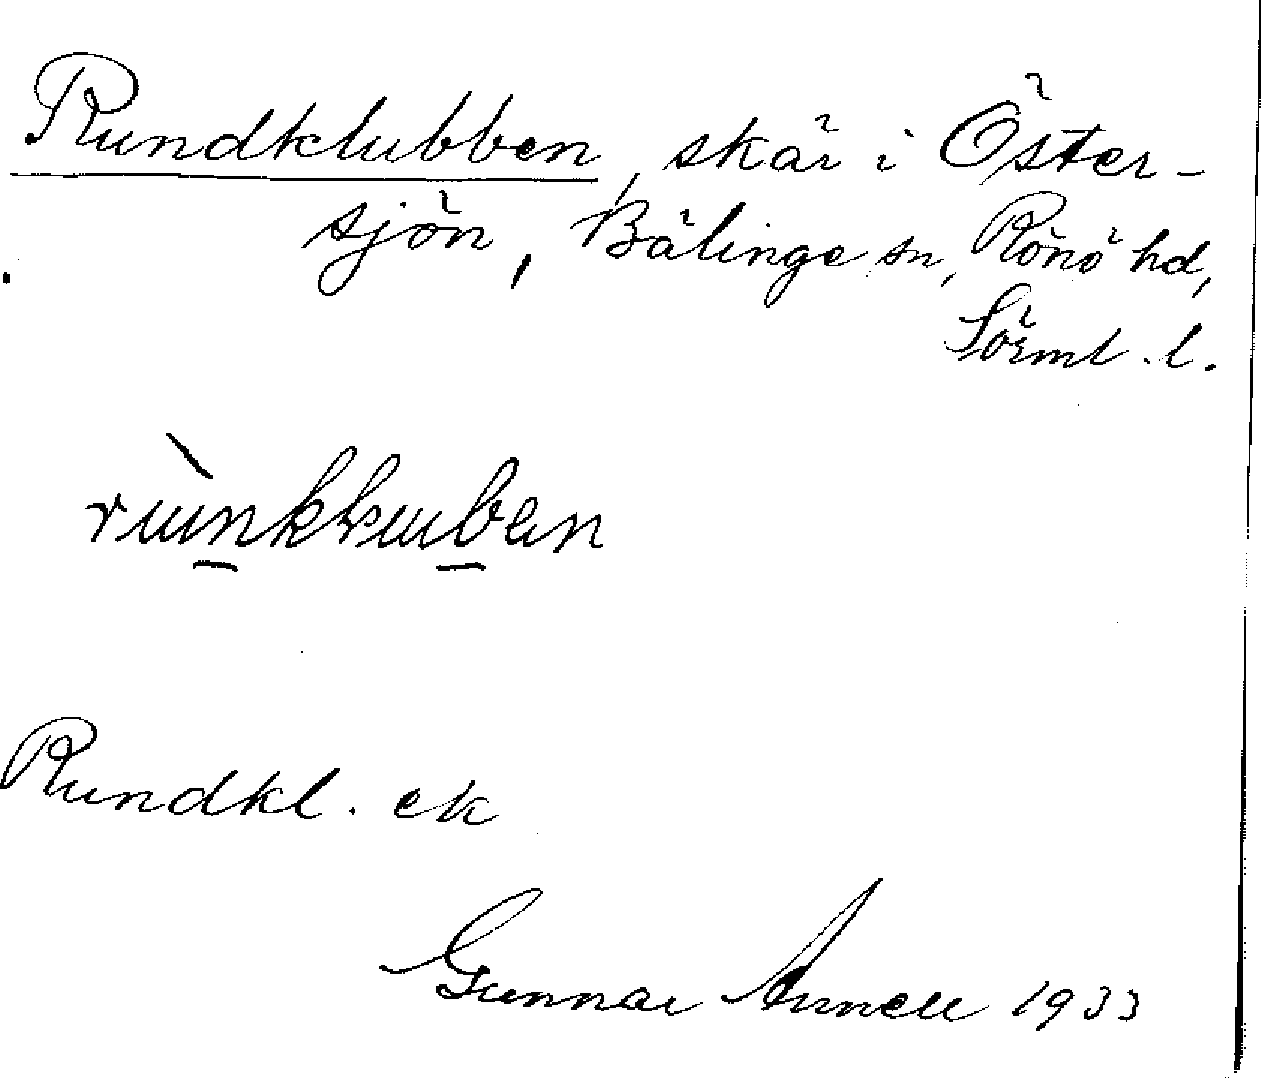 Rundklubben, skär i Öster-
sjön, Bälinge sn, Rönö hd,
Sörml. l.
Rundkl. ek
Gunnar Annell 1933